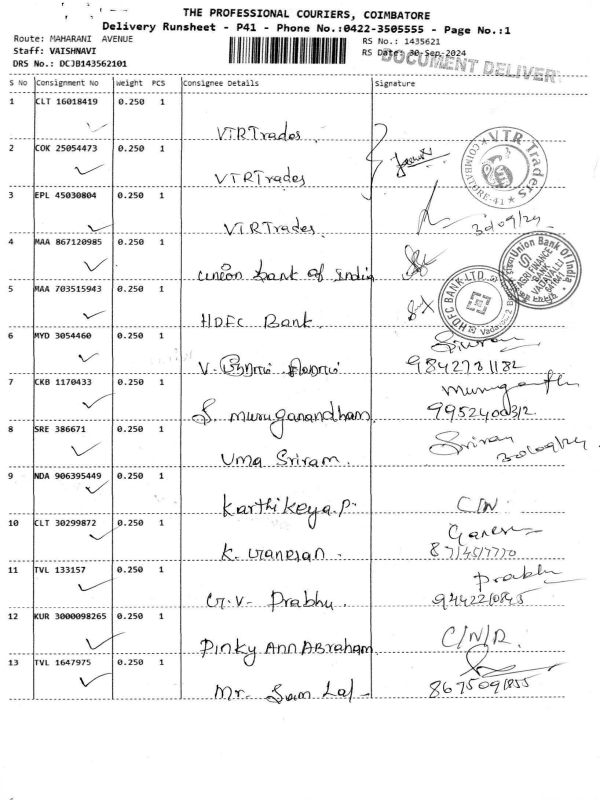 THE PROFESSIONAL COURIERS, COIMBATORE
Delivery Runsheet - P41 - Phone No.:0422-3505555 - Page No.:1
Route: MAHARANI AVENUE
Staff: VAISHNAVI
DRS No.: DCJB143562101
RS No.: 1435621
RS Date: 30-Sep-2024
DOCUMENT DELIVERY
S No Consignment No Weight PCS Consignee Details Signature
1 CLT 16018419 0.250 1
VTR Trades.
2 COK 25054473 0.250 1
VTR Trades
VTR Traders
COIMBATORE-41
3 EPL 45030804 0.250 1
VTR Trades.
30/09/24
4 MAA 867120985 0.250 1
Union Bank of India
Union Bank Of India
VADAVALLI
5 MAA 703515943 0.250 1
HDFC Bank.
HDFC BANK LTD.
6 MYD 3054460 0.250 1
V.
Sriram
9842731182
7 CKB 1170433 0.250 1
S. Muruganandham
9952400312
8 SRE 386671 0.250 1
Uma Sriram.
Sriram
30/09/24
9 NDA 906395449 0.250 1
Karthikeya.P.
C/N.
10 CLT 30299872 0.250 1
K. Ganesan.
Ganesan
11 TVL 133157 0.250 1
G.V. Prabhu.
Prabhu
9442210845
12 KUR 3000098265 0.250 1
Pinky Ann Abraham.
C/N/R.
13 TVL 1647975 0.250 1
Mr. Sam Lal
8675091855